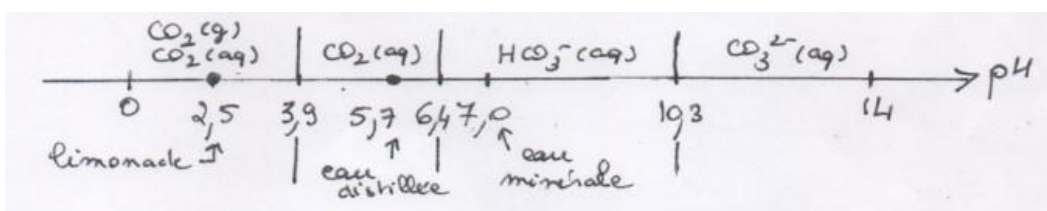 CO₂(g)
CO₂(aq) CO₂(aq) HCO₃⁻(aq) CO₃²⁻(aq)
pH
0 2,5 3,9 5,7 6,4 7,0 10,3 14
limonade eau distillée eau minérale